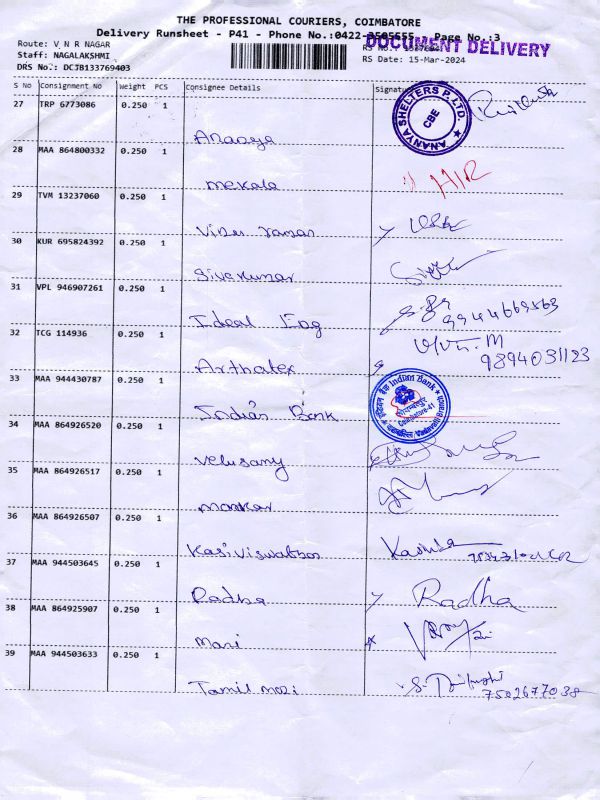 THE PROFESSIONAL COURIERS, COIMBATORE
Delivery Runsheet - P41 - Phone No.:0422-3505655 Page No.:3
DOCUMENT DELIVERY
Route: V N R NAGAR
Staff: NAGALAKSHMI
RS Date: 15-Mar-2024
DRS No.: DCJB133769403
S No Consignment No Weight PCS Consignee Details Signature
27 TRP 6773086 0.250 1
ANANYA SHELTERS P. LTD. CBE
Ananya
28 MAA 864800332 0.250 1
Mekala
29 TVM 13237060 0.250 1
30 KUR 695824392 0.250 1
Sivakumar
31 VPL 946907261 0.250 1
Ideal Eng 9944669563
32 TCG 114936 0.250 1
9894031123
Arthatex
33 MAA 944430787 0.250 1
Indian Bank
Coimbatore-41
Vadavalli Branch
Indian Bank
34 MAA 864926520 0.250 1
Velusamy
35 MAA 864926517 0.250 1
36 MAA 864926507 0.250 1
37 MAA 944503645 0.250 1
Radha Radha
38 MAA 864925907 0.250 1
Mani
39 MAA 944503633 0.250 1
Tamil mozi 7502677038